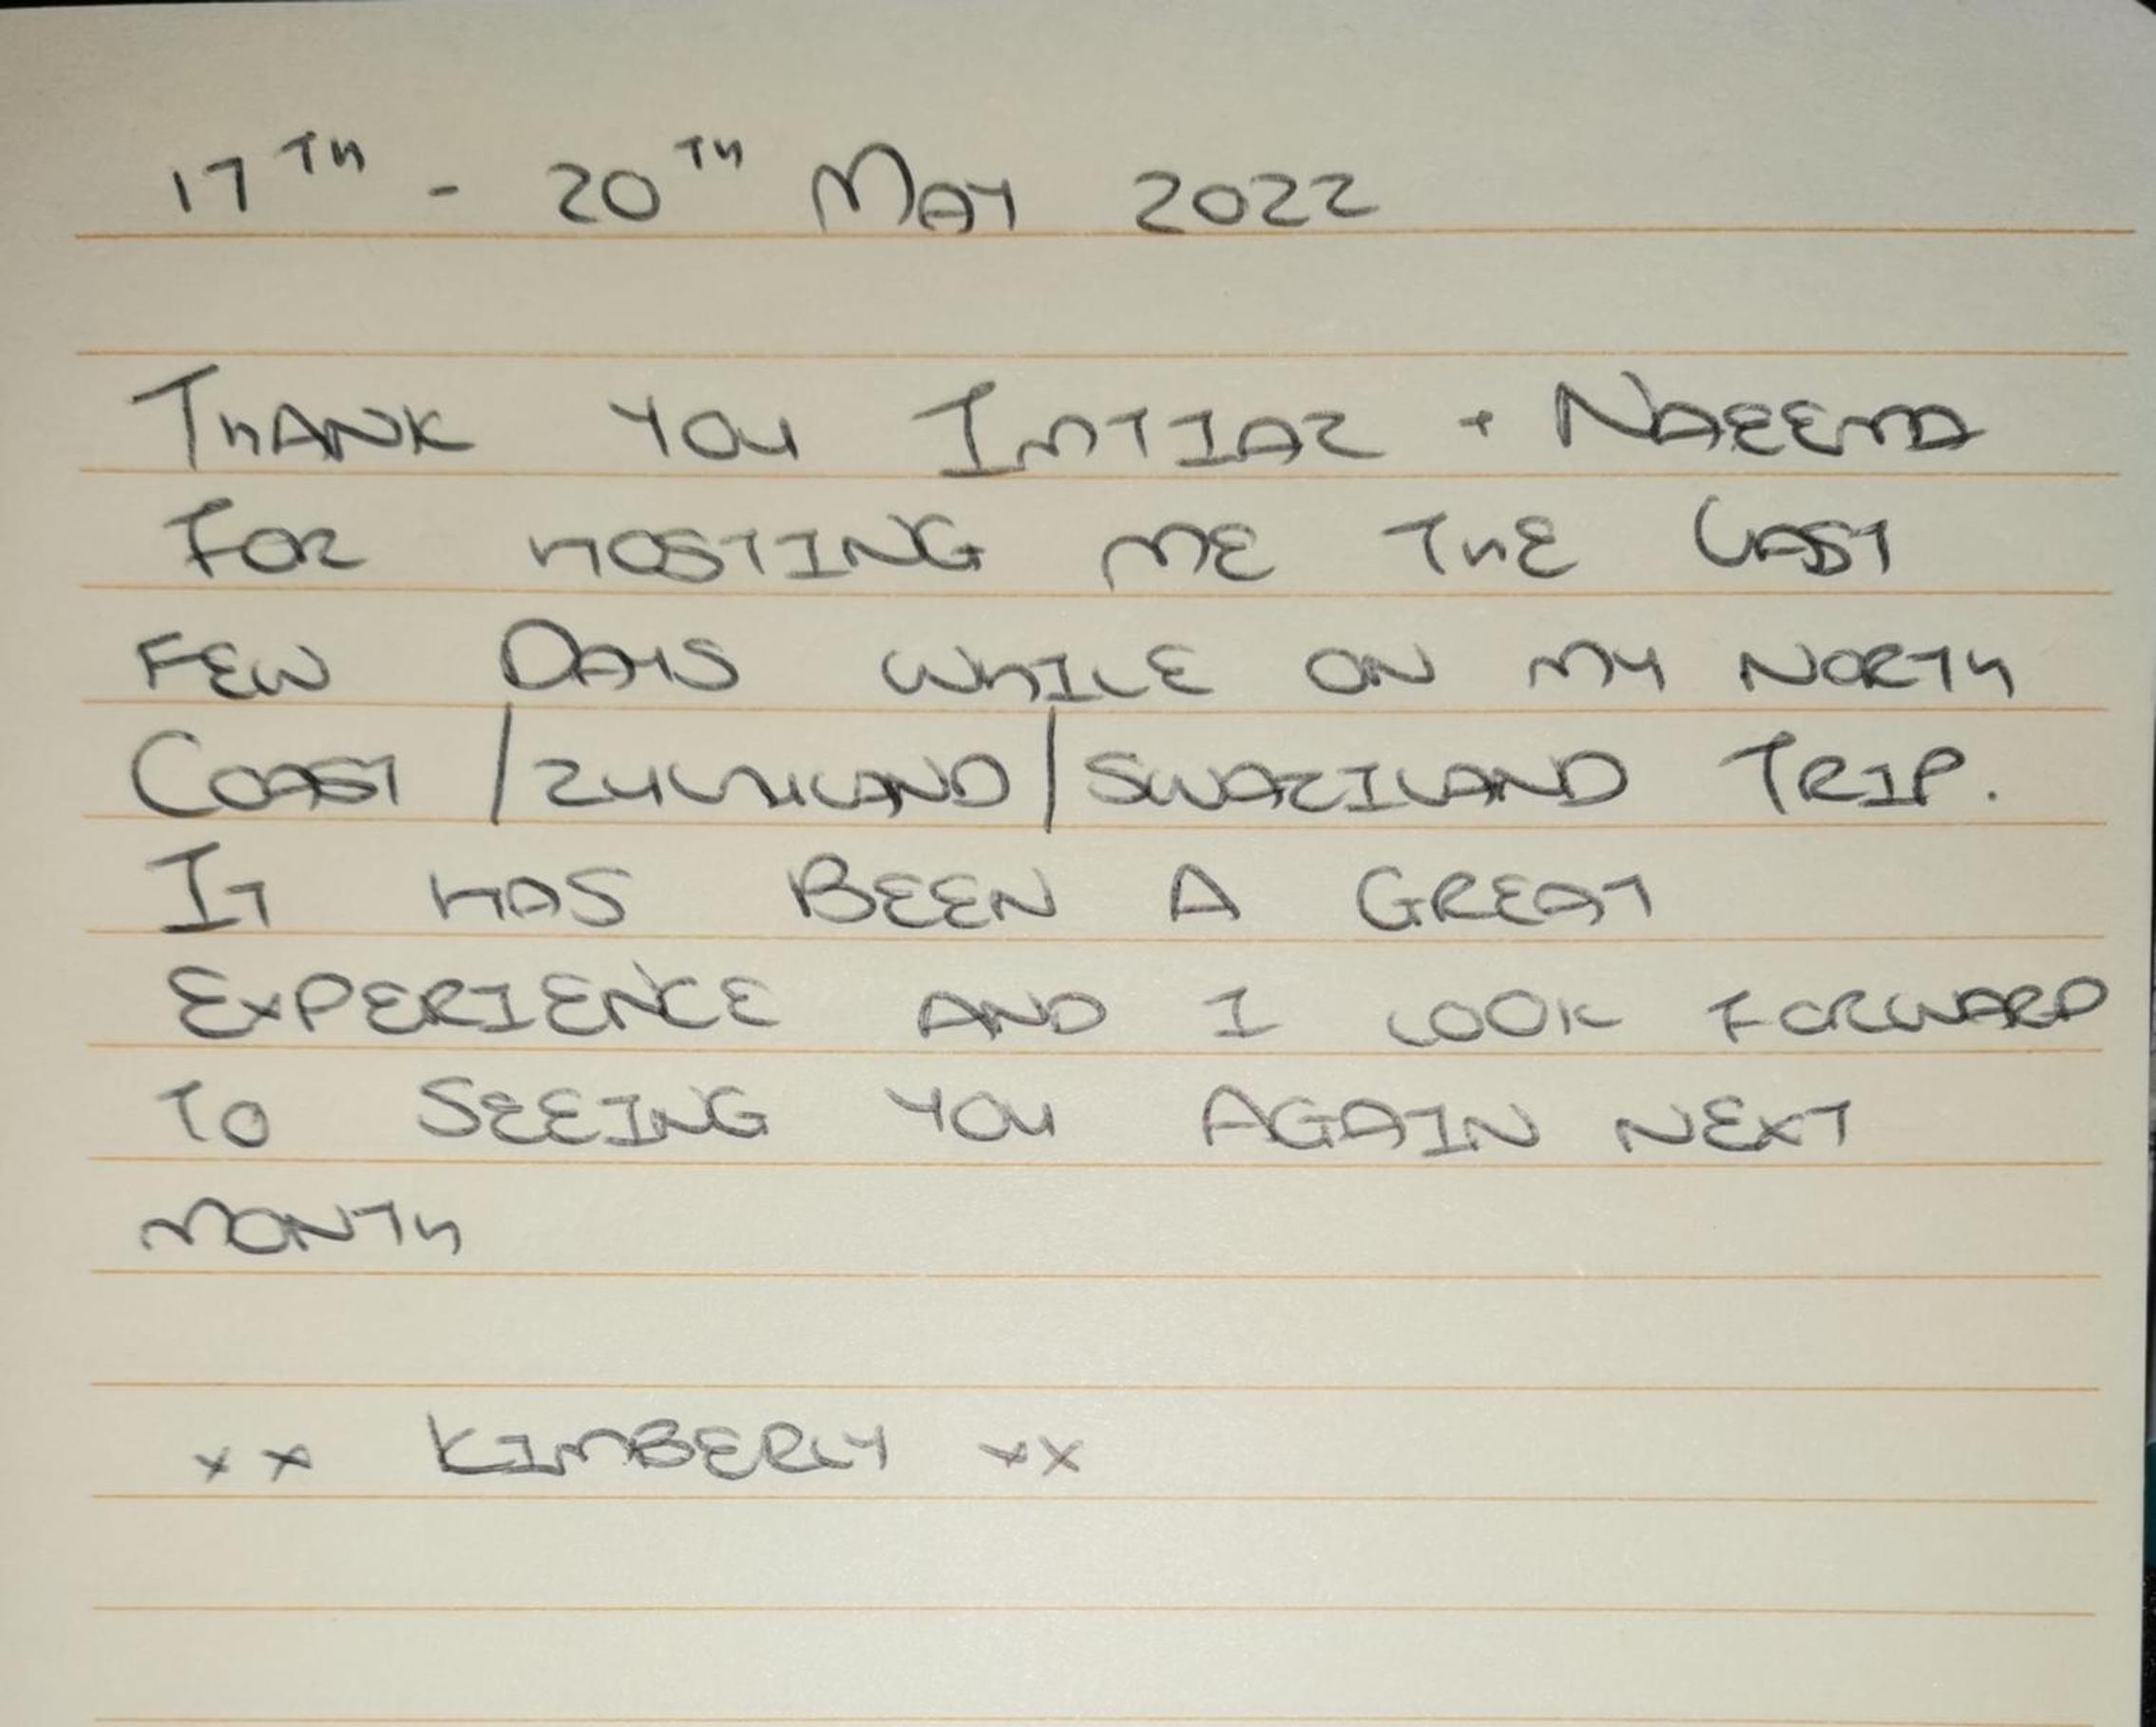 17TH - 20TH MAY 2022
THANK YOU IMTIAZ + NAEEMA
FOR HOSTING ME THE LAST
FEW DAYS WHILE ON MY NORTH
COAST / ZULULAND / SWAZILAND TRIP.
IT HAS BEEN A GREAT
EXPERIENCE AND I LOOK FORWARD
TO SEEING YOU AGAIN NEXT
MONTH
xx KIMBERLY xx